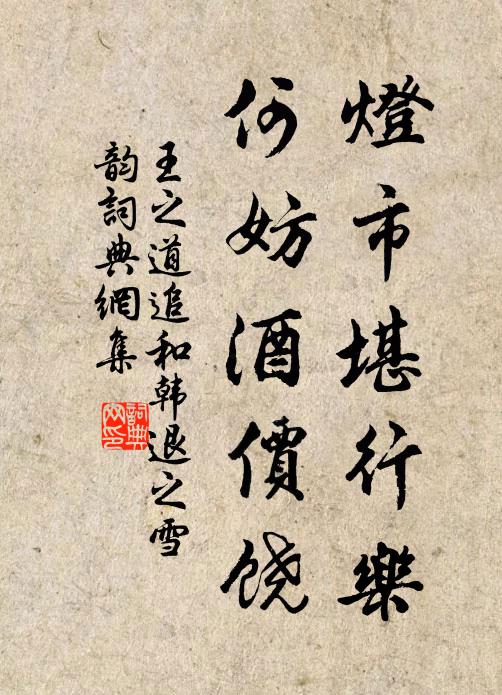 燈市堪行樂
何妨酒價饶
王之道追和韩退之雪
韵詞典網集
詞典网印